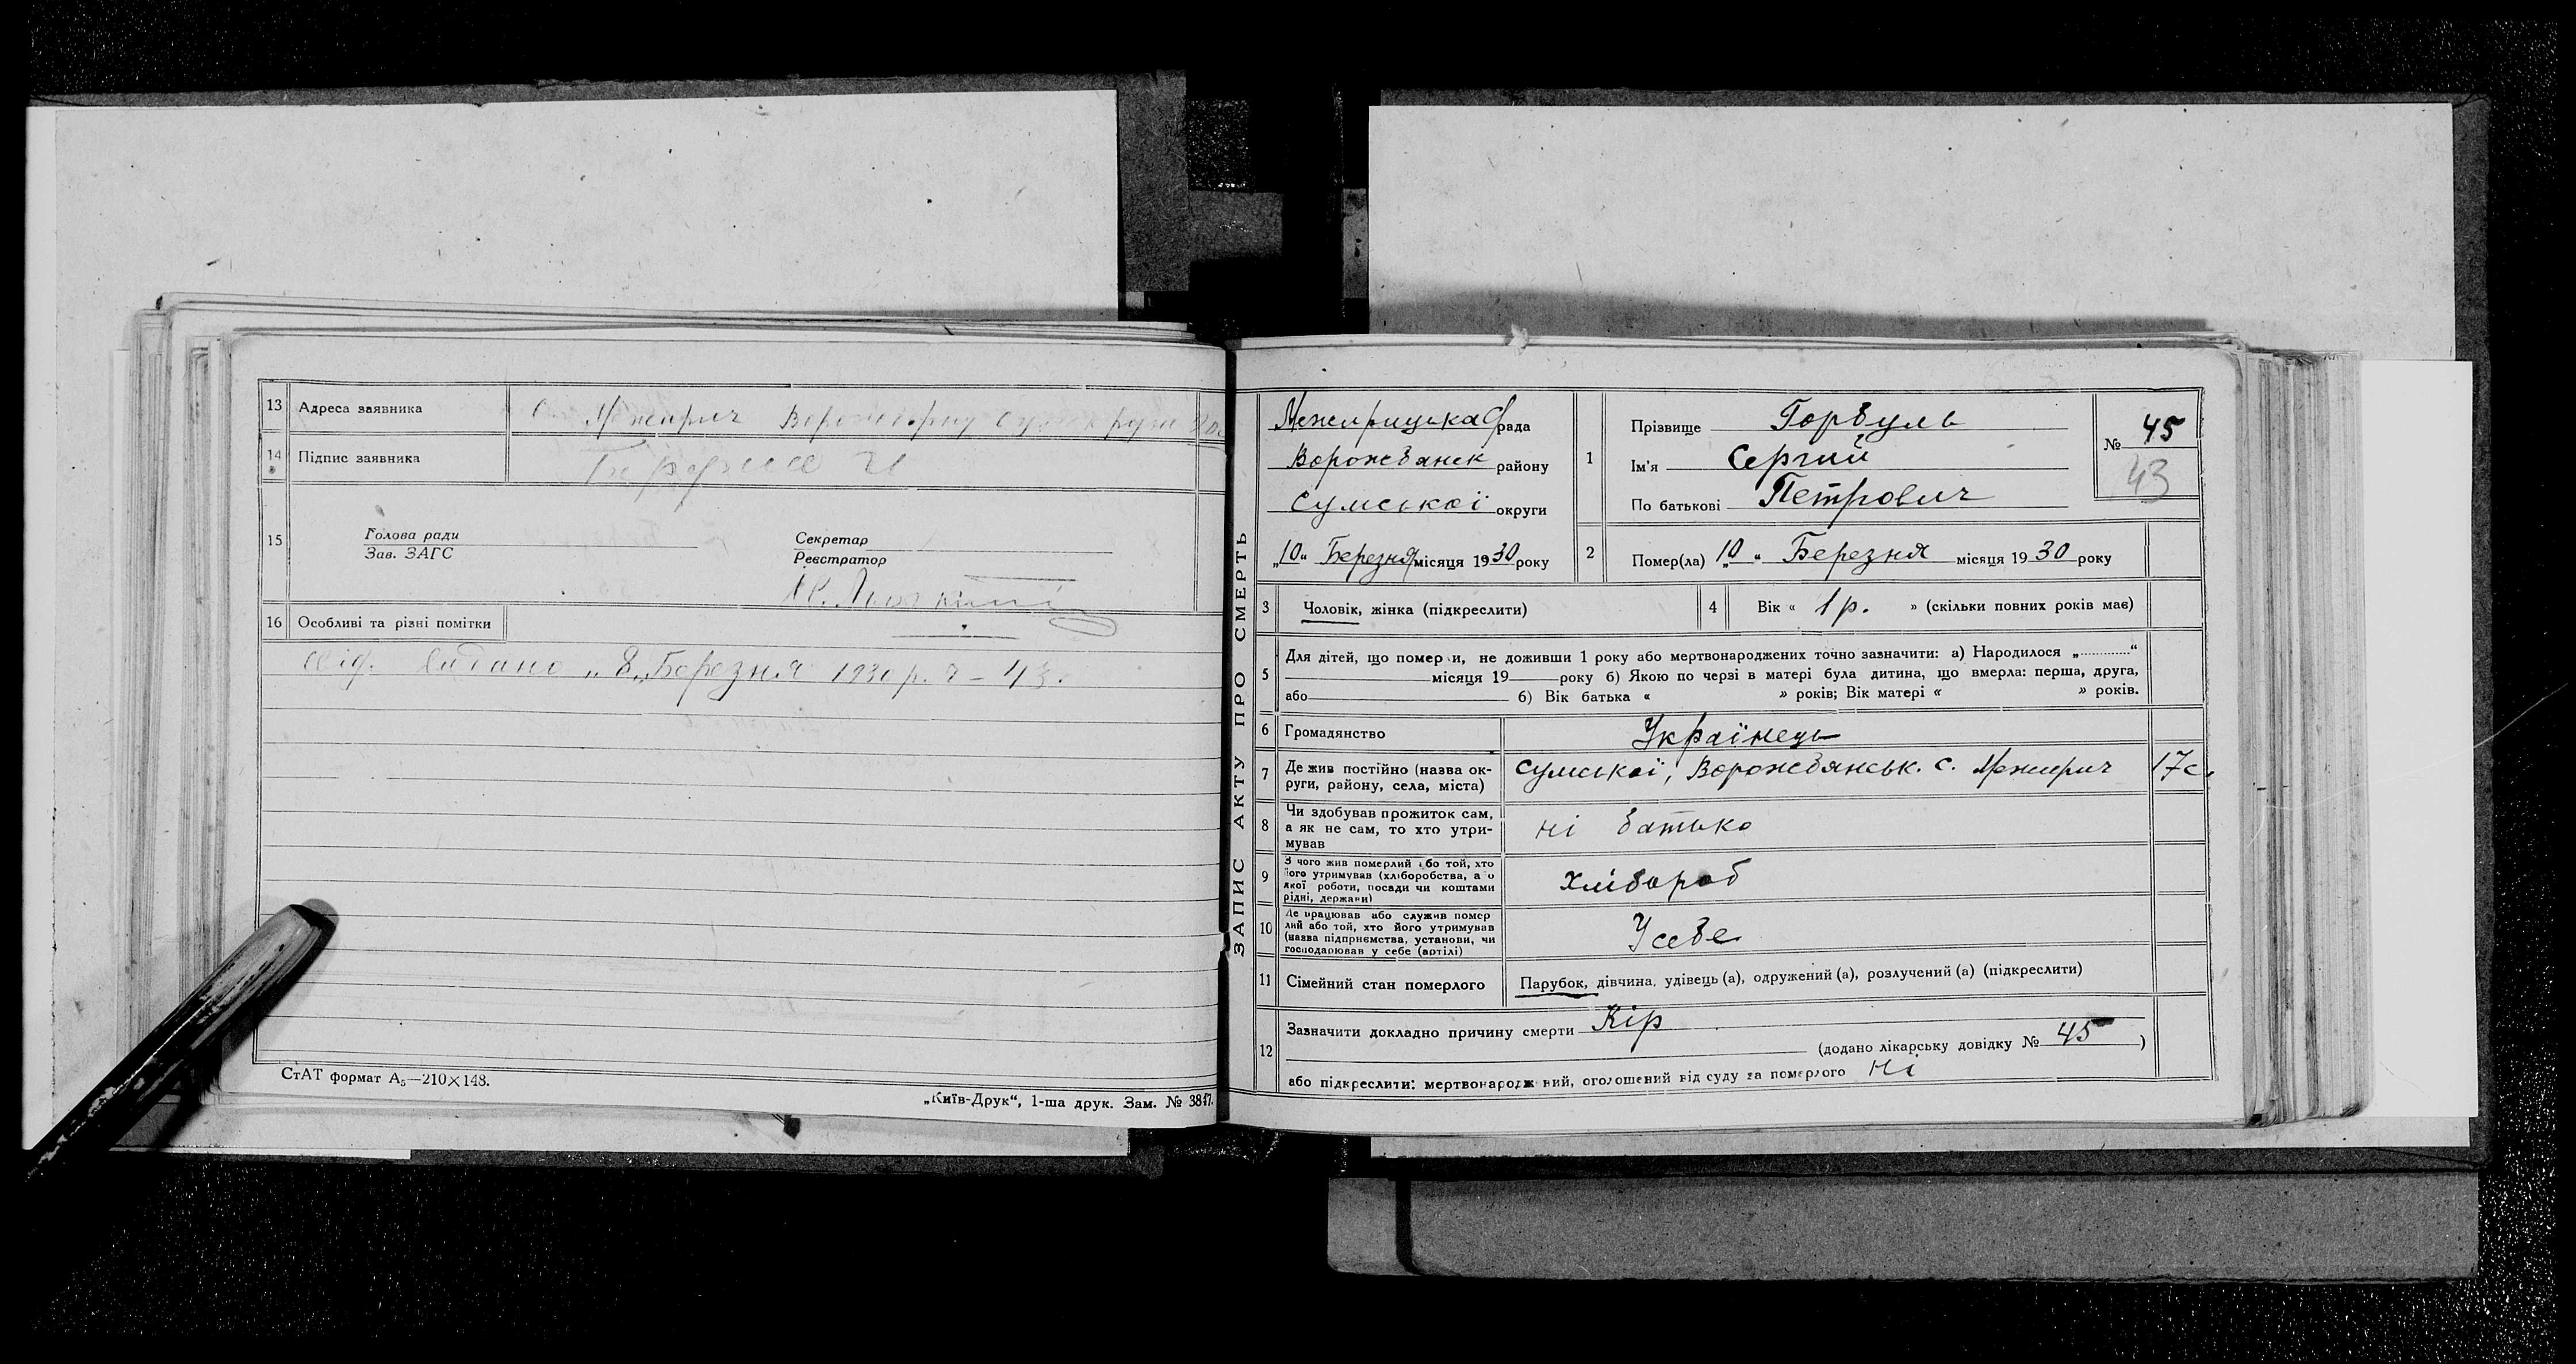 13 Адреса заявника Межирич
14 Підпис заявника
15 Голова ради
Зав. ЗАГС
Секретар
Реєстратор
16 Особливі та різні помітки
видано „8„ Березня 1930 р. 43.
СтАТ формат А₅—210×148.
„Київ-Друк“, 1-ша друк. Зам. № 3817.
ЗАПИС АКТУ ПРО СМЕРТЬ
Межирицька С/рада
Ворожбянск району
Сумської округи
„10“ Березня місяця 1930 року
1 Прізвище Горбуль
Ім'я Сергий
По батькові Петрович
№ 45
43
2 Помер(ла) „10“ Березня місяця 1930 року
3 Чоловік, жінка (підкреслити)
4 Вік « 1 р. » (скільки повних років має)
5 Для дітей, що померли, не доживши 1 року або мертвонароджених точно зазначити: а) Народилося „..........“
місяця 19 року б) Якою по черзі в матері була дитина, що вмерла: перша, друга,
або б) Вік батька « » років; Вік матері « » років.
6 Громадянство Українець
7 Де жив постійно (назва ок-
руги, району, села, міста) Сумської, Ворожбянськ. с. Межирич 17с.
8 Чи здобував прожиток сам,
а як не сам, то хто утри-
мував ні батько
9 З чого жив померлий або той, хто
його утримував (хліборобства, або
якої роботи, посади чи коштами
рідні, держави) Хлібороб
10 Де працював або служив помер
лий або той, хто його утримував
(назва підприємства, установи, чи
господарював у себе (артілі) У себе
11 Сімейний стан померлого Парубок, дівчина, удівець (а), одружений (а), розлучений (а) (підкреслити)
12 Зазначити докладно причину смерти Кір
(додано лікарську довідку № 45 )
або підкреслити: мертвонароджений, оголошений від суду за померлого ні